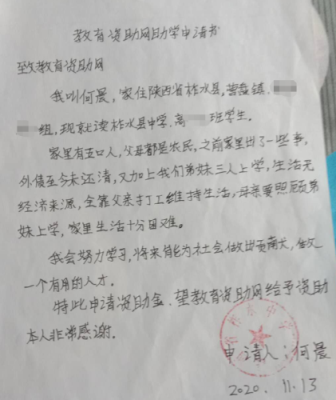 教育资助网助学申请书
致教育资助网
我叫何晨，家住陕西省柞水县，营盘镇，
组，现就读柞水县中学，高 班学生。
家里有五口人，父母都是农民，之前家里出了一些事，
外债至今未还清，又加上我们弟妹三人上学，生活无
经济来源，全靠父亲打工维持生活，母亲要照顾弟
妹上学，家里生活十分困难。
我会努力学习，将来能为社会做出贡献，做
一个有用的人才。
特此申请资助金，望教育资助网给予资助
本人非常感谢。
申请人：何晨
2020. 11.13